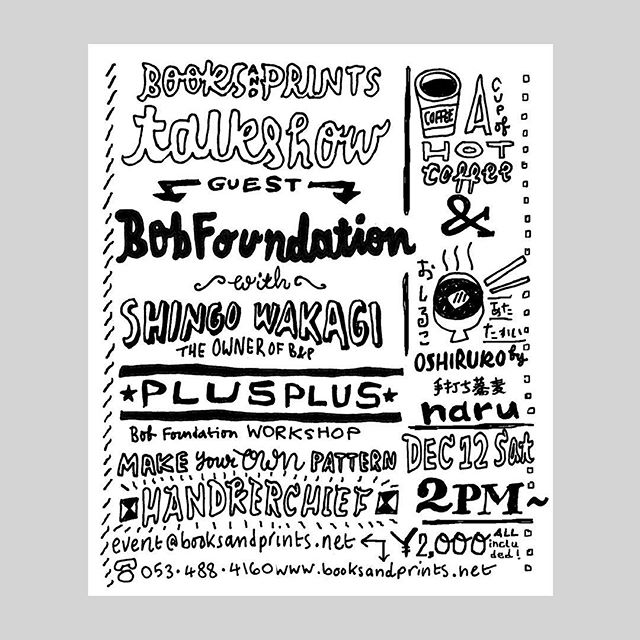 BOOKS AND PRINTS
talkshow
GUEST
BobFoundation
with
SHINGO WAKAGI
THE OWNER OF B&P
★PLUSPLUS★
Bob Foundation WORKSHOP
MAKE your own PATTERN
HANDKERCHIEF
event@booksandprints.net
053・488・4160 www.booksandprints.net
COFFEE
A CUP of
HOT
coffee
&
おしるこ
あたたかい
OSHIRUKO by
手打ち蕎麦
naru
DEC 12 Sat
2PM~
¥2,000 ALL included!